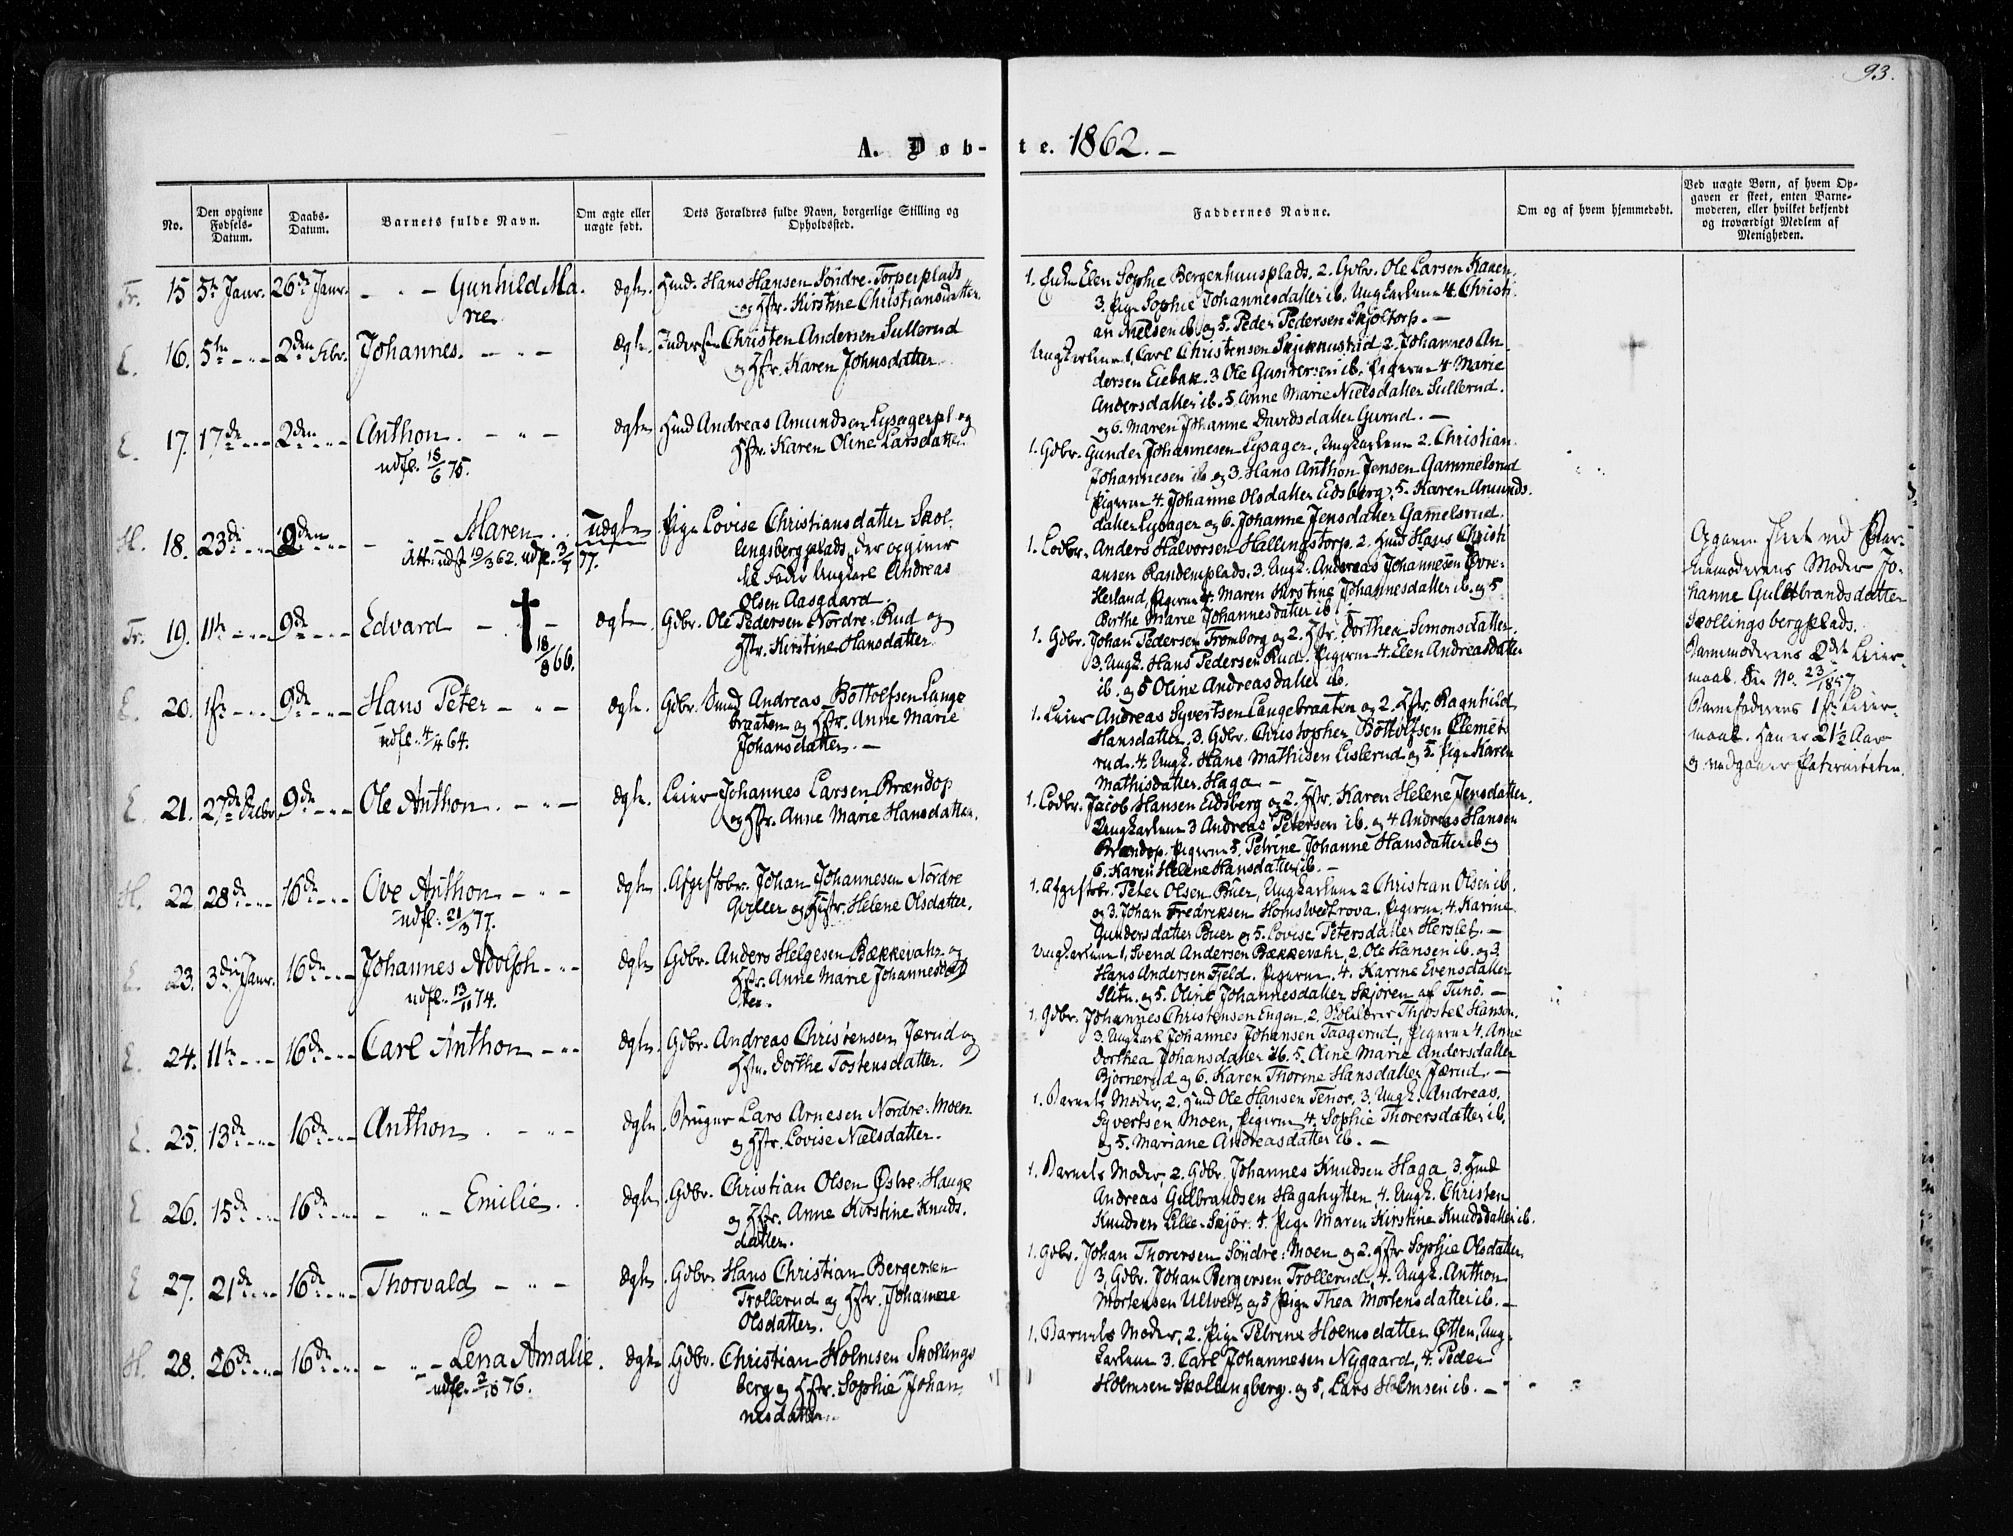 93.
A. Døb- te. 1862. –
No.
Den opgivne Fødsels-Datum.
Daabs-Datum.
Barnets fulde Navn.
Om ægte eller uægte født.
Dets Forældres fulde Navn, borgerlige Stilling og Opholdssted.
Faddernes Navne.
Om og af hvem hjemmedøbt.
Ved uægte Børn, af hvem Op-
gaven er skeet, enten Barne-
moderen, eller hvilket bekjendt
og troværdigt Medlem af
Menigheden.
Fr. 15 5te Janr. 26de Janr. – " – Gunhild Ma- ægte. Huusm. Hans Hansen Söndre-Torperplads
rie og Hstr. Kirstine Christiansdatter.
1. Enke Elen Sophie Bergenhuusplads. 2. Gdbr. Ole Larsen
3. Pige Sophie Johannesdatter ib. Ungkarlene 4. Christi-
an Nielsen ib. og 5. Peder Pedersen Skjøltorp. –
E. 16. 5te – " – 2den Febr. Johannes. – " – ægte. Inderst Christen Andersen Sullerud
og Hstr. Karen Johnsdatter
Ungkarlene 1. Carl Christensen 2. Johannes An-
dersen Eiebak. 3 Ole Gundersen ib. Pigerne 4 Marie
Andersdatter ib. 5. Anne Marie Nielsdatter Sullerud.
og 6. Maren Johanne Davidsdatter Gurud. –
E. 17. 17de – " – 2den – " – Anthon. – " – ægte Huusm Andreas Amundsen Lysagerpl. og
udfl. 18/6 75. Hstr. Karen Oline Larsdatter
1. Gdbr. Gunder Johannesen Lysager, Ungkarlene 2. Christian
Johannesen ib og 3. Hans Anthon Jensen Gammelsrud
Pigerne 4. Johanne Olsdatter Eidsberg, 5. Karen Amunds-
datter Lysager og 6. Johanne Jensdatter Gamelsrud.
H. 18. 23de – " – 9den – " – – " – Maren. uægte Pige Lovise Christiansdatter Skol-
Att. udst 19/3 62. udfl. 3/4 77. lingsbergplads, der opgiver
til Fader Ungkarl Andreas
Olsen Aasgaard.
1. Lodbr. Anders Halvorsen Hallingstorp. 2. Huusm Hans Christi
ansen Randemplads. 3. Ungk. Andreas Johannesen Øvre-
Herland, Pigerne 4. Maren Kirstine Johannesdatter ib. og 5
Berthe Marie Johannesdatter ib.
Opgaven skeet ved Bar-
nemoderens Moder Jo-
hanne Gulbrandsdatter
Skollingsbergplads.
Barnemoderens 2det Leier-
maal. See No. 23/1857
Barnefaderens 1ste Leier-
maal. Han er 21½ Aar
og vedgaaer Paterniteten.
Fr. 19. 11te – " – 9de – " – Edvard – " – ægte Gdbr. Ole Pedersen Nordre-Rud og
18/8 66. Hstr. Kirstine Hansdatter
1. Gdbr. Johan Pedersen Trømborg og 2. Hstr. Dorthea Simonsdatter.
3. Ungk. Hans Pedersen Rud. Pigerne 4. Elen Andreasdatter
ib. og 5 Oline Andreasdatter ib.
E. 20. 1ste – " – 9de – " – Hans Peter – " – ægte. Gdbr. Smed Andreas Bottolfsen Lange
udfl. 4/4 64. braaten og Hstr. Anne Marie
Johansdatter. –
1. Leier Andreas Syvertsen Langebraaten og 2. Hstr. Ragnhild
Hansdatter. 3. Gdbr. Christopher Bottolfsen Clemets-
rud. 4. Ungk. Hans Mathisen Lislerud og 5. Pige Karen
Mathisdatter Haga –
E. 21. 27de Decbr. 9de – " – Ole Anthon. – " – ægte. Leier Johannes Larsen Brændop
og Hstr. Anne Marie Hansdatter.
1. Lodbr. Jacob Hansen Eidsberg og 2. Hstr. Karen Helene Jensdatter.
Ungkarlene 3 Andreas Petersen ib. og 4 Andreas Hansen
Brændop. Pigerne 5. Petrine Johanne Hansdatter ib og
6. Karen Helene Hansdatter ib. –
H. 22 28de – " – 16de – " – Ove Anthon – " – ægte Afgiftsbr. Johan Johannesen Nordre
udfl. 21/3 77. Gviller og Hustr. Helene Olsdatter.
1. Afgiftsbr. Peter Olsen Buer, Ungkarlene 2 Christian Olsen ib.
og 3. Johan Fredriksen Homstvedtrova. Pigerne. 4. Karine
Gundersdatter Buer og 5. Lovise Petersdatter Herslet. –
E. 23. 3die Janr. 16de – " – Johannes Adolph – " – ægte Gdbr. Anders Helgesen Bækkevahr og
udfl. 13/11 74. Hstr. Anne Marie Johannesdat-
ter.
Ungkarlene 1. Svend Andersen Bækkevahr, 2. Ole Hansen ib. og 3.
Hans Andersen Fjeld. Pigerne. 4. Karine Evensdatter
Slitu. og 5. Oline Johannesdatter Skjøren af Tunø. –
E. 24. 11te – " – 16de – " – Carl Anthon – " – ægte Gdbr. Andreas Christensen Jærud og
Hstr. Dorthe Tostensdatter.
1. Gdbr. Johannes Christensen Engen. 2. Thostel Hansen.
3. Ungkarl Johannes Johansen Taagerud, Pigerne 4. Anne
Dorthea Johansdatter ib. 5. Oline Marie Andersdatter
Bjørnerud og 6. Karen Thorine Hansdatter Jærud. –
E. 25. 13de – " – 16de – " – Anthon – " – ægte Bruger Lars Arnesen Nordre-Moen
og Hstr. Lovise Nielsdatter.
1. Barnets Moder, 2. Huusm Ole Hansen Tenor, 3. Ungk. Andreas
Syvertsen Moen, Pigerne 4. Sophie Thorersdatter ib.
og 5. Mariane Andreasdatter ib. –
E 26. 15de – " – 16de – " – – " – Emilie. ægte Gdbr. Christian Olsen Østre-Hauge
og Hstr. Anne Kirstine Knuds-
datter.
1. Barnets Moder 2. Gdbr. Johannes Knudsen Haga 3. Huusm
Andreas Gulbrandsen Hagahytten 4. Ungk. Christen
Knudsen Lille-Skjør. 5. Pige Maren Kirstine Knudsdatter ib.
E 27. 21de – " – 16de – " – Thorvald – " – ægte Gdbr. Hans Christian Bergersen
Trollerud og Hstr. Johanne
Olsdatter.
1. Gdbr. Johan Thorersen Søndre-Moen og 2. Hstr Sophie Olsdatter
3. Gdbr. Johan Bergersen Trollerud, 4. Ungk. Anthon
Mortensen Ultvedt og 5 Pige Thea Mortensdatter ib. –
H. 28. 26de – " – 16de – " – – " – Lena Amalie. ægte Gdbr. Christian Holmsen Skollings
udfl. 2/10 76. berg og Hstr. Sophie Johan-
nesdatter.
1. Barnets Moder, 2. Pige Petrine Holmsdatter Otten, Ung-
karlene 3. Carl Johannesen Nygaard, 4. Peder
Holmsen Skollingberg. og 5. Lars Holmsen ib. –